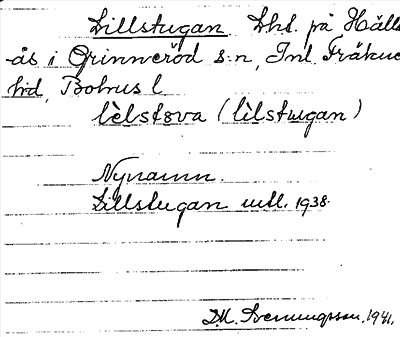 Lillstugan Lht. på Hälls-
ås i Grinneröd s:n, Inl. Fräkne
hd, Bohus l.
lèlstɷva (lìlstugan)
Nynamn.
Lillstugan uttl. 1938.
D.M. Svenungsson. 1941.